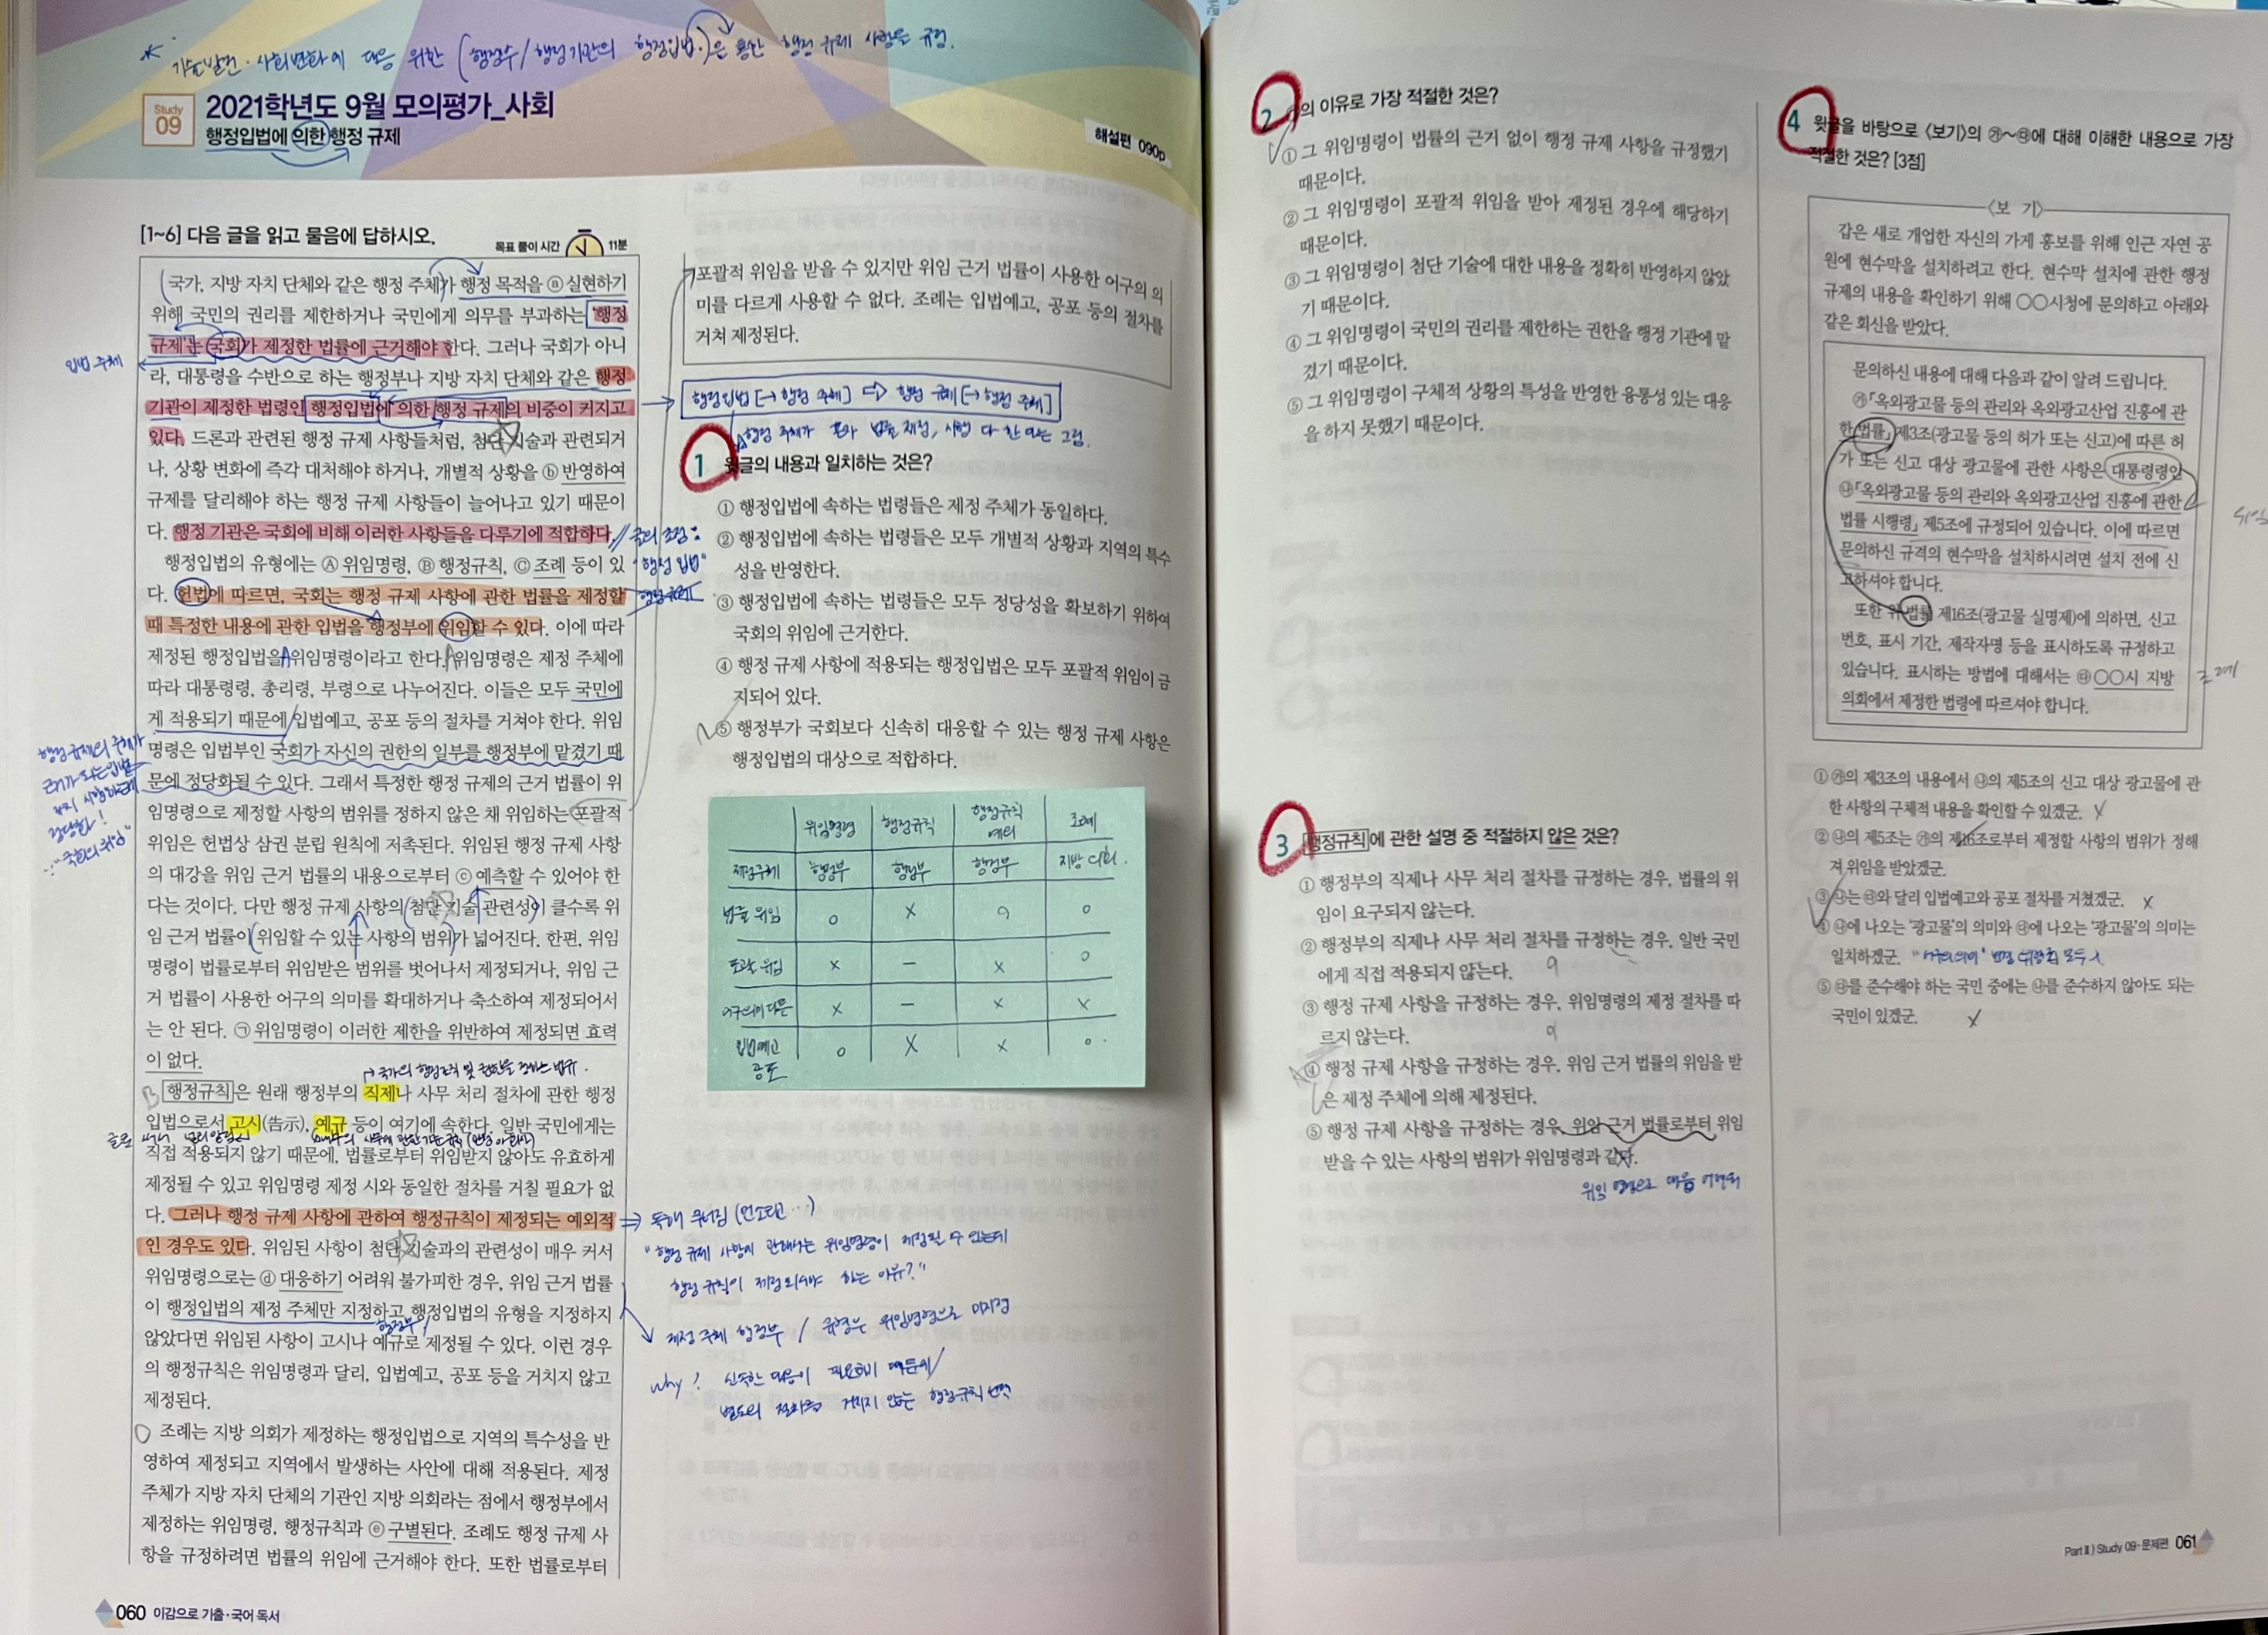 * 기술발전·사회변화에 대응 위한 (행정수/행정기관의 행정입법)은 통한 행정 규제 사항을 규정.
Study
09
2021학년도 9월 모의평가_사회
행정입법에 의한 행정 규제
해설편 090p
[1~6] 다음 글을 읽고 물음에 답하시오.
목표 풀이 시간 11분
국가, 지방 자치 단체와 같은 행정 주체가 행정 목적을 ⓐ 실현하기
위해 국민의 권리를 제한하거나 국민에게 의무를 부과하는 '행정
규제'는 국회가 제정한 법률에 근거해야 한다. 그러나 국회가 아니
입법 주체
라, 대통령을 수반으로 하는 행정부나 지방 자치 단체와 같은 행정
기관이 제정한 법령인 행정입법에 의한 행정 규제의 비중이 커지고
있다. 드론과 관련된 행정 규제 사항들처럼, 첨단 기술과 관련되거
나, 상황 변화에 즉각 대처해야 하거나, 개별적 상황을 ⓑ 반영하여
규제를 달리해야 하는 행정 규제 사항들이 늘어나고 있기 때문이
다. 행정 기관은 국회에 비해 이러한 사항들을 다루기에 적합하다.
글의 초점:
"행정 입법"
행정규제
행정입법의 유형에는 Ⓐ 위임명령, Ⓑ 행정규칙, Ⓒ 조례 등이 있
다. 헌법에 따르면, 국회는 행정 규제 사항에 관한 법률을 제정할
때 특정한 내용에 관한 입법을 행정부에 위임할 수 있다. 이에 따라
제정된 행정입법을 A 위임명령이라고 한다. 위임명령은 제정 주체에
따라 대통령령, 총리령, 부령으로 나누어진다. 이들은 모두 국민에
게 적용되기 때문에 입법예고, 공포 등의 절차를 거쳐야 한다. 위임
명령은 입법부인 국회가 자신의 권한의 일부를 행정부에 맡겼기 때
문에 정당화될 수 있다. 그래서 특정한 행정 규제의 근거 법률이 위
임명령으로 제정할 사항의 범위를 정하지 않은 채 위임하는 포괄적
위임은 헌법상 삼권 분립 원칙에 저촉된다. 위임된 행정 규제 사항
의 대강을 위임 근거 법률의 내용으로부터 ⓒ 예측할 수 있어야 한
다는 것이다. 다만 행정 규제 사항의 첨단 기술 관련성이 클수록 위
임 근거 법률이 위임할 수 있는 사항의 범위가 넓어진다. 한편, 위임
명령이 법률로부터 위임받은 범위를 벗어나서 제정되거나, 위임 근
거 법률이 사용한 어구의 의미를 확대하거나 축소하여 제정되어서
는 안 된다. ㉠ 위임명령이 이러한 제한을 위반하여 제정되면 효력
이 없다.
행정규제의 주체가
근거가 되는 입법
까지 시행하는게
정당한가!
∴ "국회의 위임"
→ 국가의 행정조직 및 권한을 정하는 법규.
B 행정규칙은 원래 행정부의 직제나 사무 처리 절차에 관한 행정
입법으로서 고시(告示), 예규 등이 여기에 속한다. 일반 국민에게는
직접 적용되지 않기 때문에, 법률로부터 위임받지 않아도 유효하게
제정될 수 있고 위임명령 제정 시와 동일한 절차를 거칠 필요가 없
다. 그러나 행정 규제 사항에 관하여 행정규칙이 제정되는 예외적
인 경우도 있다. 위임된 사항이 첨단 기술과의 관련성이 매우 커서
위임명령으로는 ⓓ 대응하기 어려워 불가피한 경우, 위임 근거 법률
이 행정입법의 제정 주체만 지정하고 행정입법의 유형을 지정하지
행정부
않았다면 위임된 사항이 고시나 예규로 제정될 수 있다. 이런 경우
의 행정규칙은 위임명령과 달리, 입법예고, 공포 등을 거치지 않고
제정된다.
조례는 지방 의회가 제정하는 행정입법으로 지역의 특수성을 반
영하여 제정되고 지역에서 발생하는 사안에 대해 적용된다. 제정
주체가 지방 자치 단체의 기관인 지방 의회라는 점에서 행정부에서
제정하는 위임명령, 행정규칙과 ⓔ 구별된다. 조례도 행정 규제 사
항을 규정하려면 법률의 위임에 근거해야 한다. 또한 법률로부터
060 이감으로 기출·국어 독서
포괄적 위임을 받을 수 있지만 위임 근거 법률이 사용한 어구의 의
미를 다르게 사용할 수 없다. 조례는 입법예고, 공포 등의 절차를
거쳐 제정된다.
행정입법 [→ 행정 주체] ⇨ 행정 규제 [→ 행정 주체]
행정 주체가 혼자 법률 제정, 시행 다 한다는 그럼.
1 윗글의 내용과 일치하는 것은?
① 행정입법에 속하는 법령들은 제정 주체가 동일하다.
② 행정입법에 속하는 법령들은 모두 개별적 상황과 지역의 특수
성을 반영한다.
③ 행정입법에 속하는 법령들은 모두 정당성을 확보하기 위하여
국회의 위임에 근거한다.
④ 행정 규제 사항에 적용되는 행정입법은 모두 포괄적 위임이 금
지되어 있다.
⑤ 행정부가 국회보다 신속히 대응할 수 있는 행정 규제 사항은
행정입법의 대상으로 적합하다.
위임명령 행정규칙 행정규칙 예외 조례
제정주체 행정부 행정부 행정부 지방 의회.
법률 위임 O X O O
포괄 위임 X - X O
어구의미 다른 X - X X
입법예고 공포 O X X O
⇒ 독해 무너짐 (먼소리고…)
"행정 규제 사항에 관해서는 위임명령이 제정될 수 있는데
행정 규칙이 제정되어야 하는 이유?"
제정 주체 행정부 / 유형은 위임명령으로 미지정
why? 신속한 대응이 필요하기 때문에
별도의 절차를 거치지 않는 행정규칙 선택
2 ㉠의 이유로 가장 적절한 것은?
① 그 위임명령이 법률의 근거 없이 행정 규제 사항을 규정했기
때문이다.
② 그 위임명령이 포괄적 위임을 받아 제정된 경우에 해당하기
때문이다.
③ 그 위임명령이 첨단 기술에 대한 내용을 정확히 반영하지 않았
기 때문이다.
④ 그 위임명령이 국민의 권리를 제한하는 권한을 행정 기관에 맡
겼기 때문이다.
⑤ 그 위임명령이 구체적 상황의 특성을 반영한 융통성 있는 대응
을 하지 못했기 때문이다.
3 행정규칙에 관한 설명 중 적절하지 않은 것은?
① 행정부의 직제나 사무 처리 절차를 규정하는 경우, 법률의 위
임이 요구되지 않는다.
② 행정부의 직제나 사무 처리 절차를 규정하는 경우, 일반 국민
에게 직접 적용되지 않는다.
③ 행정 규제 사항을 규정하는 경우, 위임명령의 제정 절차를 따
르지 않는다.
④ 행정 규제 사항을 규정하는 경우, 위임 근거 법률의 위임을 받
은 제정 주체에 의해 제정된다.
⑤ 행정 규제 사항을 규정하는 경우, 위임 근거 법률로부터 위임
받을 수 있는 사항의 범위가 위임명령과 같다.
위임 명령으로 대응 어려워
4 윗글을 바탕으로 〈보기〉의 ㉮~㉰에 대해 이해한 내용으로 가장
적절한 것은? [3점]
〈보 기〉
갑은 새로 개업한 자신의 가게 홍보를 위해 인근 자연 공
원에 현수막을 설치하려고 한다. 현수막 설치에 관한 행정
규제의 내용을 확인하기 위해 ○○시청에 문의하고 아래와
같은 회신을 받았다.
문의하신 내용에 대해 다음과 같이 알려 드립니다.
㉮「옥외광고물 등의 관리와 옥외광고산업 진흥에 관
한 법률」 제3조(광고물 등의 허가 또는 신고)에 따른 허
가 또는 신고 대상 광고물에 관한 사항은 대통령령인
㉯「옥외광고물 등의 관리와 옥외광고산업 진흥에 관한
법률 시행령」 제5조에 규정되어 있습니다. 이에 따르면
문의하신 규격의 현수막을 설치하시려면 설치 전에 신
고하셔야 합니다.
위임
또한 위 법률 제16조(광고물 실명제)에 의하면, 신고
번호, 표시 기간, 제작자명 등을 표시하도록 규정하고
있습니다. 표시하는 방법에 대해서는 ㉰○○시 지방
의회에서 제정한 법령에 따르셔야 합니다.
조례
① ㉮의 제3조의 내용에서 ㉯의 제5조의 신고 대상 광고물에 관
한 사항의 구체적 내용을 확인할 수 있겠군. X
② ㉯의 제5조는 ㉮의 제16조로부터 제정할 사항의 범위가 정해
져 위임을 받았겠군.
③ ㉯는 ㉰와 달리 입법예고와 공포 절차를 거쳤겠군. X
④ ㉯에 나오는 '광고물'의 의미와 ㉰에 나오는 '광고물'의 의미는
일치하겠군.
⑤ ㉰를 준수해야 하는 국민 중에는 ㉯를 준수하지 않아도 되는
국민이 있겠군. X
Part Ⅱ) Study 09·문제편 061